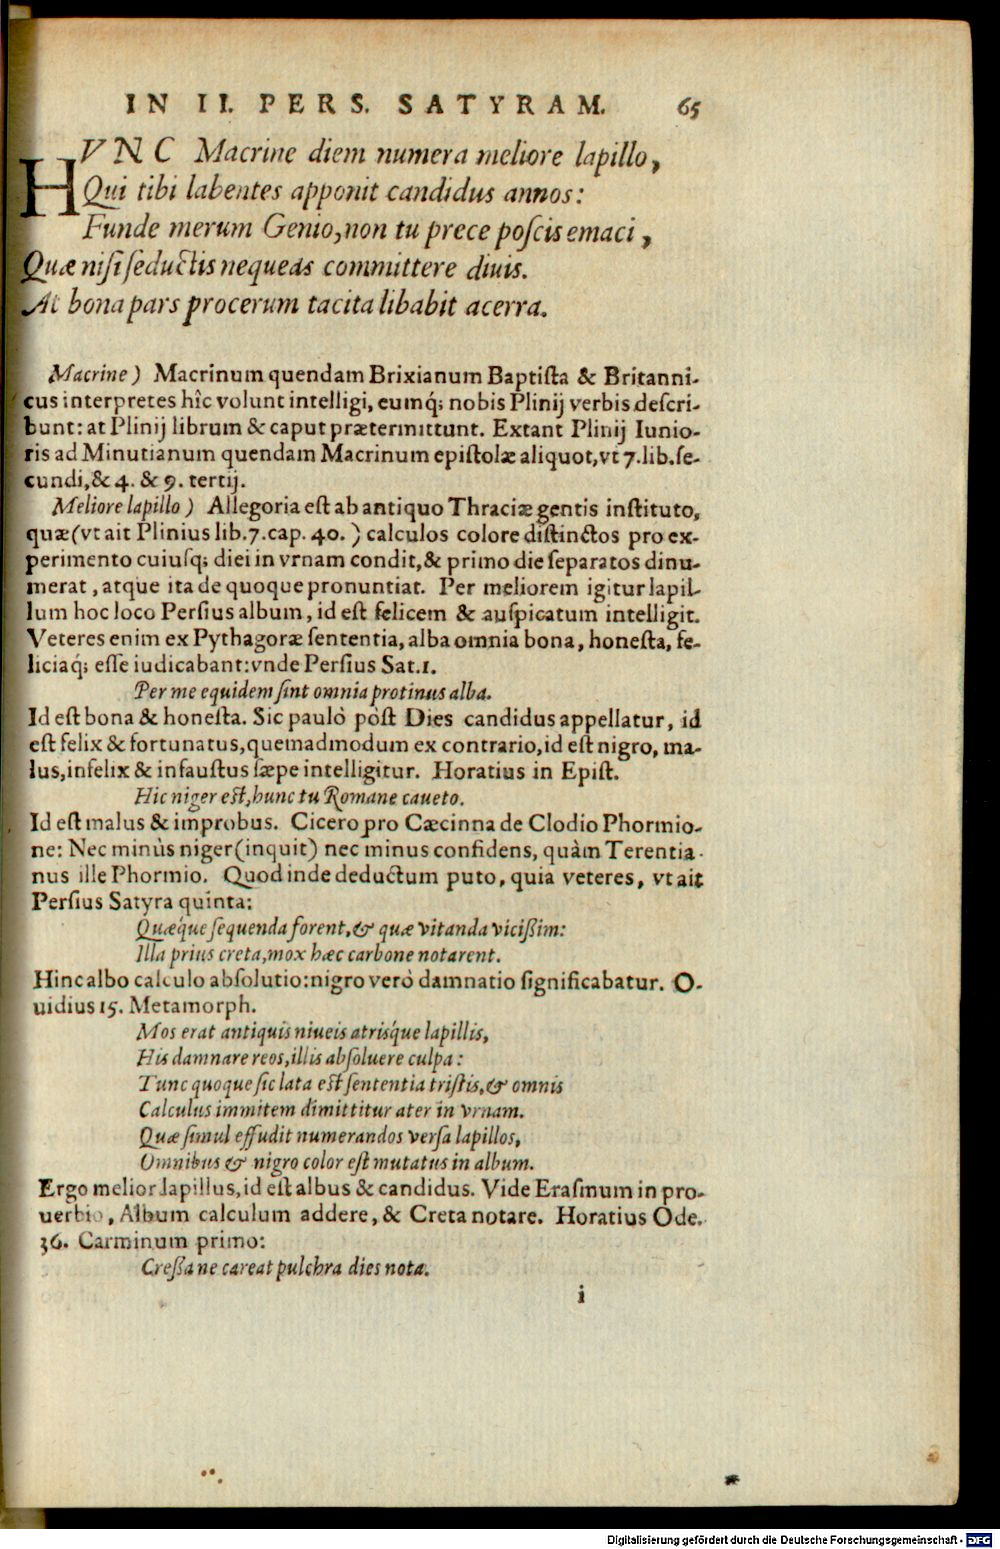 IN II. PERS. SATYRAM. 65
HVNC Macrine diem numera meliore lapillo,
Qui tibi labentes apponit candidus annos:
Funde merum Genio, non tu prece poſcis emaci,
Quæ niſi ſeductis nequeas committere diuis.
At bona pars procerum tacita libabit acerra.
Macrine) Macrinum quendam Brixianum Baptiſta & Britanni-
cus interpretes hîc volunt intelligi, eumq́; nobis Plinij verbis deſcri-
bunt: at Plinij librum & caput prætermittunt. Extant Plinij Iunio-
ris ad Minutianum quendam Macrinum epiſtolæ aliquot, vt 7. lib. ſe-
cundi, & 4. & 9. tertij.
Meliore lapillo) Allegoria eſt ab antiquo Thraciæ gentis inſtituto,
quæ (vt ait Plinius lib. 7. cap. 40.) calculos colore diſtinctos pro ex-
perimento cuiuſq; diei in vrnam condit, & primo die ſeparatos dinu-
merat, atque ita de quoque pronuntiat. Per meliorem igitur lapil-
lum hoc loco Perſius album, id eſt felicem & auſpicatum intelligit.
Veteres enim ex Pythagoræ ſententia, alba omnia bona, honeſta, fe-
liciaq́; eſſe iudicabant: vnde Perſius Sat. 1.
Per me equidem ſint omnia protinus alba.
Id eſt bona & honeſta. Sic paulò pòſt Dies candidus appellatur, id
eſt felix & fortunatus, quemadmodum ex contrario, id eſt nigro, ma-
lus, infelix & infauſtus ſæpe intelligitur. Horatius in Epiſt.
Hic niger eſt, hunc tu Romane caueto.
Id eſt malus & improbus. Cicero pro Cæcinna de Clodio Phormio-
ne: Nec minùs niger (inquit) nec minus confidens, quàm Terentia-
nus ille Phormio. Quod inde deductum puto, quia veteres, vt ait
Perſius Satyra quinta:
Quæq́ue ſequenda forent, & quæ vitanda viciſſim:
Illa prius creta, mox hæc carbone notarent.
Hinc albo calculo abſolutio: nigro verò damnatio ſignificabatur. O-
uidius 15. Metamorph.
Mos erat antiquis niueis atrisq́ue lapillis,
His damnare reos, illis abſoluere culpa:
Tunc quoque ſic lata eſt ſententia triſtis, & omnis
Calculus immitem dimittitur ater in vrnam.
Quæ ſimul effudit numerandos verſa lapillos,
Omnibus & nigro color eſt mutatus in album.
Ergo melior lapillus, id eſt albus & candidus. Vide Eraſmum in pro-
uerbio, Album calculum addere, & Creta notare. Horatius Ode.
36. Carminum primo:
Creſſa ne careat pulchra dies nota.
i
Digitalisierung gefördert durch die Deutsche Forschungsgemeinschaft - DFG